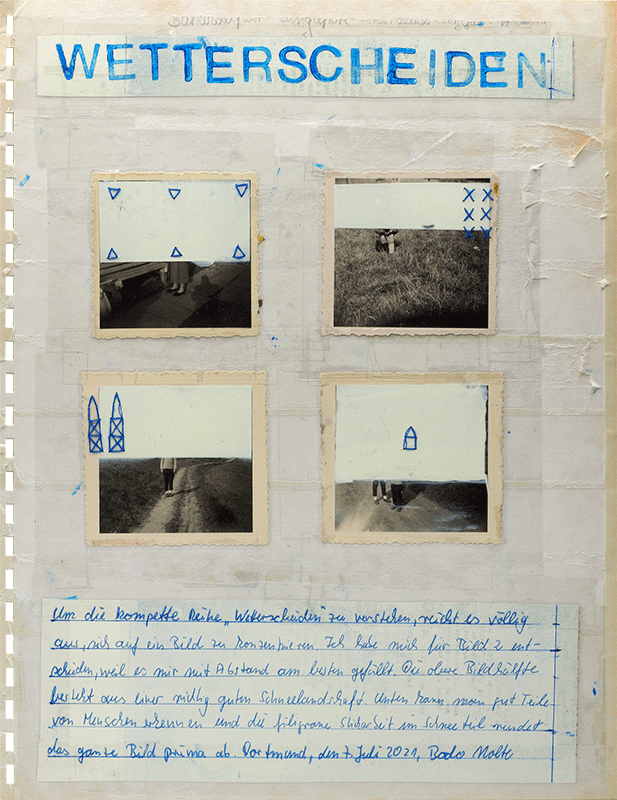 WETTERSCHEIDEN
Um die kompette Reihe „Wetterscheiden" zu verstehen, reicht es völlig
aus, sich auf ein Bild zu konzentrieren. Ich habe mich für Bild 2 ent-
scheiden, weil es mir mit Abstand am besten gefällt. Die obere Bildhälfte
besteht aus einer richtig guten Schneelandschaft. Unten kann man gut Teile
von Menschen erkennen und die filigrane Stickarbeit im Schneeteil rundet
das ganze Bild prima ab. Dortmund, den 7. Juli 2021, Bodo Nolte